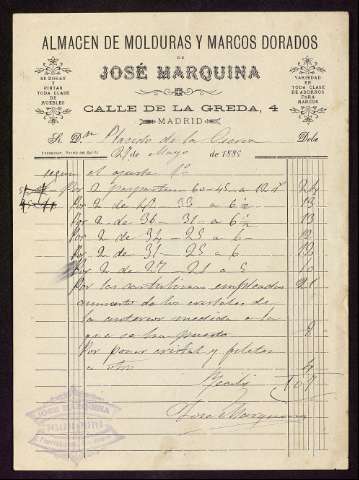 ALMACEN DE MOLDURAS Y MARCOS DORADOS
DE
JOSÉ MARQUINA
SE DORAN
Y
PINTAN
TODA CLASE
DE
MUEBLES
VARIEDAD
EN
TODA CLASE
DE ADORNOS
PARA
MARCOS
CALLE DE LA GREDA, 4
MADRID
S. D.n Plácido de la Debe
de Mayo de 188
según el ajuste
Por 2 60-45 a 12 24
Por 2 de 33 a 6½ 13
Por 2 de 36 - 31 - a 6½ 13
Por 2 de 34 - 25 a 6 - 12
Por 2 de 31 - 25 a 6 - 12
Por 2 de 27 21 a 5 10
Por las empleadas
aumento de los cristales de
la anterior medida a la
que se han puesto
Por poner cristal y filetes
a otro 4
Recibí 107
José Marquina
JOSE MARQUINA